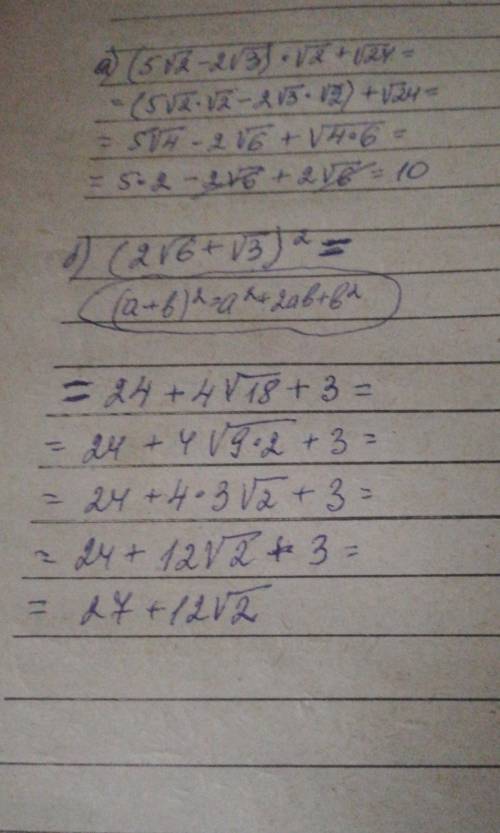 а) (5√2 - 2√3) · √2 + √24 =
= (5√2 · √2 - 2√3 · √2) + √24 =
= 5√4 - 2√6 + √4·6 =
= 5·2 - 2√6 + 2√6 = 10
б) (2√6 + √3)² =
(a+b)² = a² + 2ab + b²
= 24 + 4√18 + 3 =
= 24 + 4√9·2 + 3 =
= 24 + 4·3√2 + 3 =
= 24 + 12√2 + 3 =
= 27 + 12√2